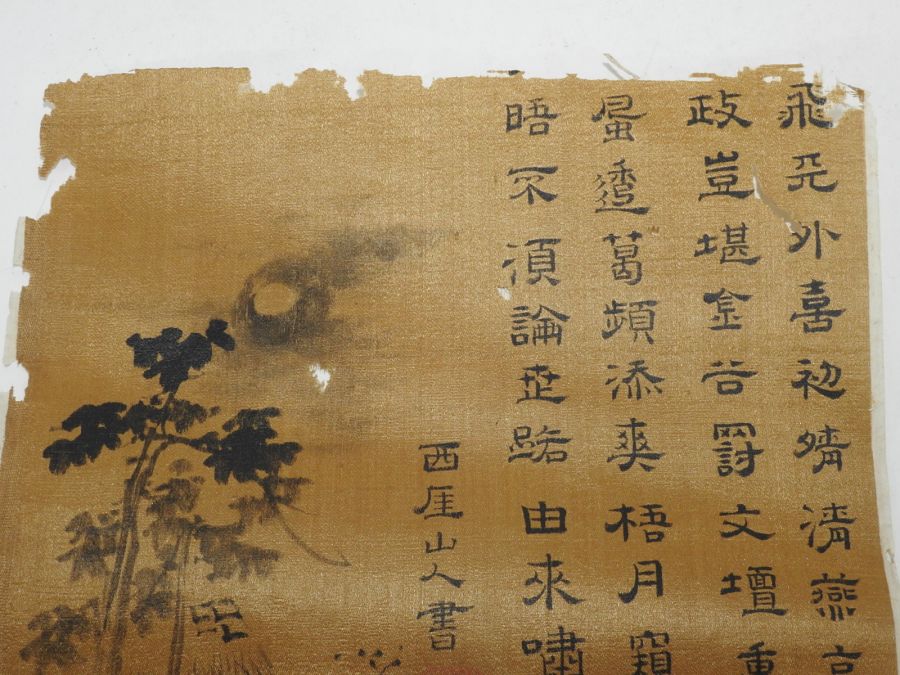 飛外喜初晴清燕
政豈堪金谷罸文壇重
風透葛頻添爽梧月窺
晤不須論世路由來嘯
西厓山人書